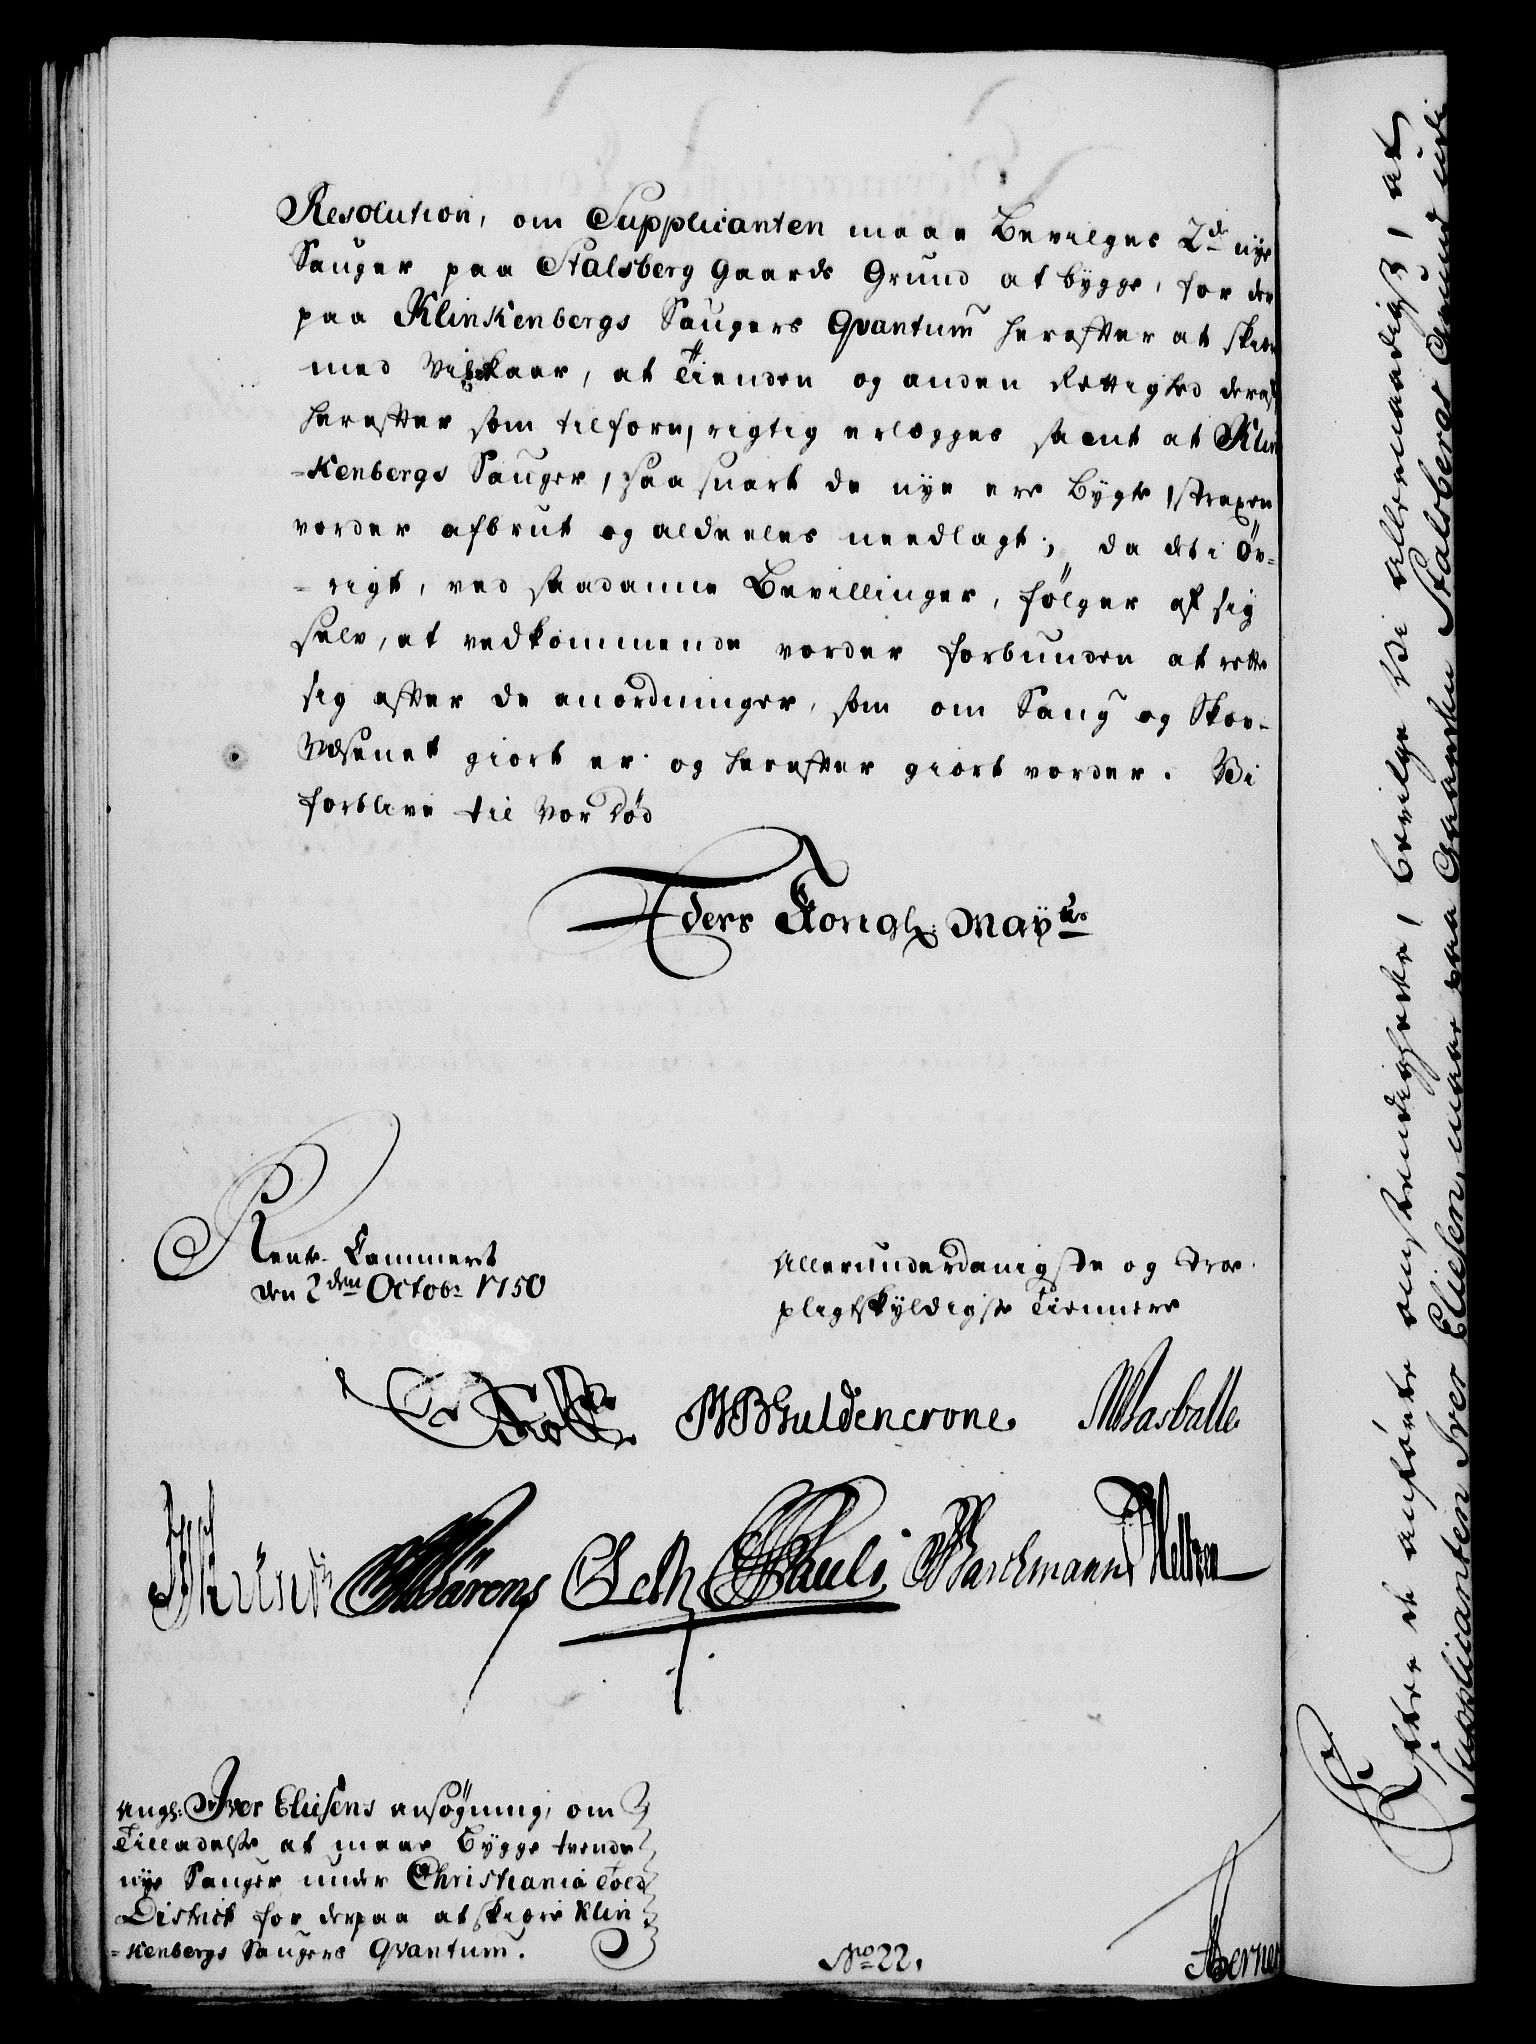 Resolution, om Supplicanten maae bevilges 2de nye
Sauger paa Stalsberg Gaards Grund at bygge, for der
paa Klinkenbergs Saugers Qvantum herefter at skiere
med Vilkaar, at Tienden og anden Rettighed deraf
herefter som tilforn, rigtig erlægges samt at Klin
-kenbergs Sauger, saasnart de nye ere bygte, straxen
vorder afbrut og aldeeles needlagt; da det i Øv-
-rigt, ved saadanne Bevillinger, følger af sig
selv, at vedkommende vorder forbunden at rette
sig efter de anordninger, som om Saug og Skov-
Væsenet giort er og herefter giort vorder. Vi
forblive til vor Død
Eders Kongl: Mayts
Rente Cammeret
den 2den Octobr 1750
Allerunderdanigste og troe
pligtskyldigste Tiennere
Guldencrone
Wasballe
Pauli
Barchmann
Angl: Iver Eliesens ansøgning, om
Tilladelse at maae bygge tvende
nye Sauger under Christiania Told
District for derpaa at skiære Klin
-kenbergs Saugers Qvantum.
No 22.
Efter de anførte omstendigheder, bevilge Vi allernaadigst, at
Supplicanten Iver Eliesen maae paa Gaarden Stalsbergs Grund